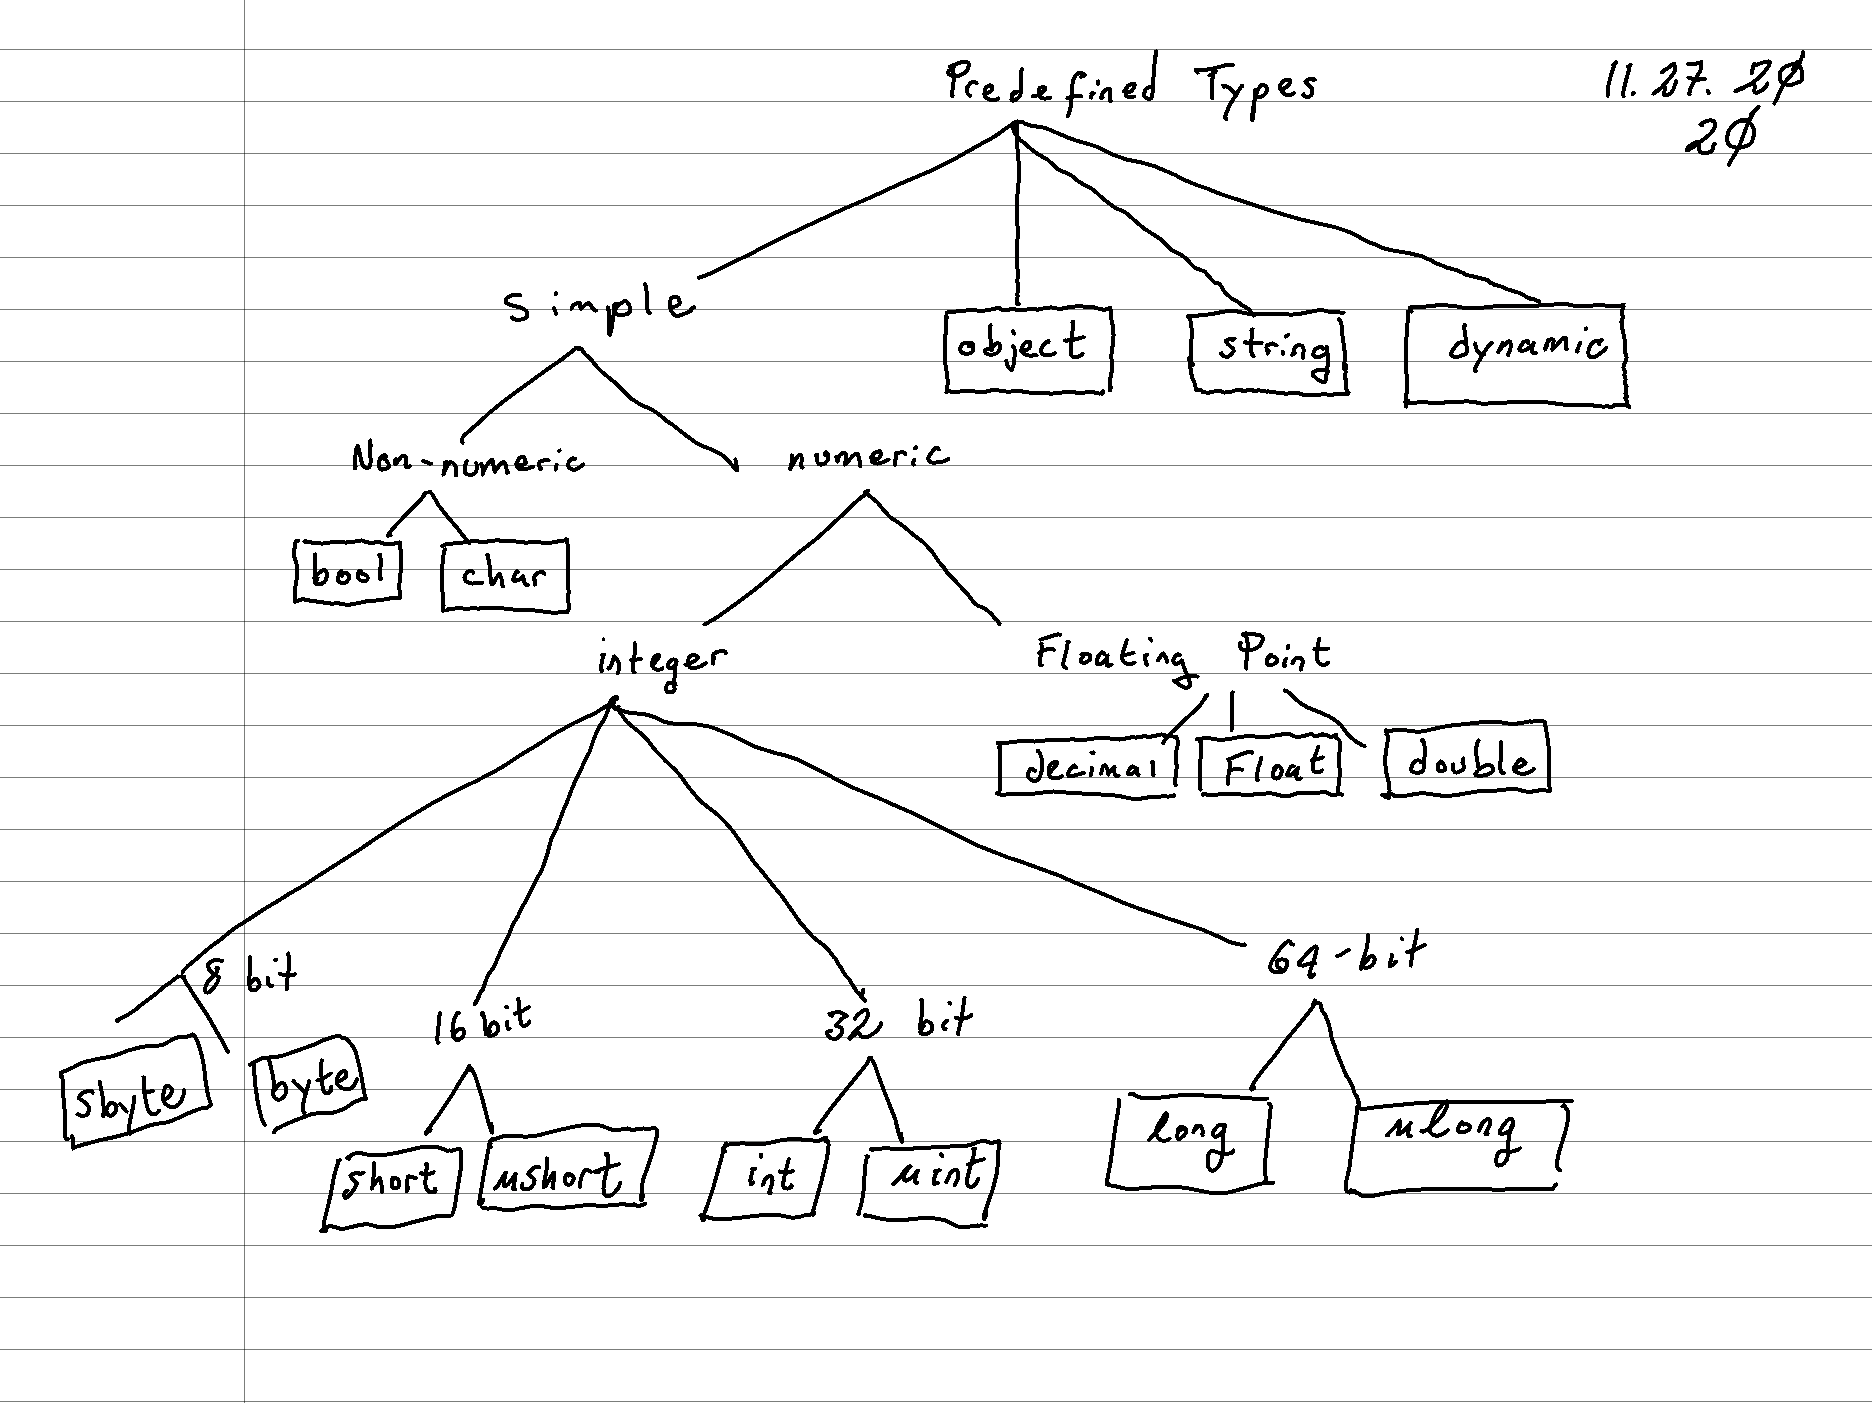 Predefined Types
11.27.20
20
Simple
object
string
dynamic
Non-numeric
numeric
bool
char
integer
Floating Point
decimal
Float
double
8 bit
16 bit
32 bit
64-bit
sbyte
byte
short
ushort
int
uint
long
ulong